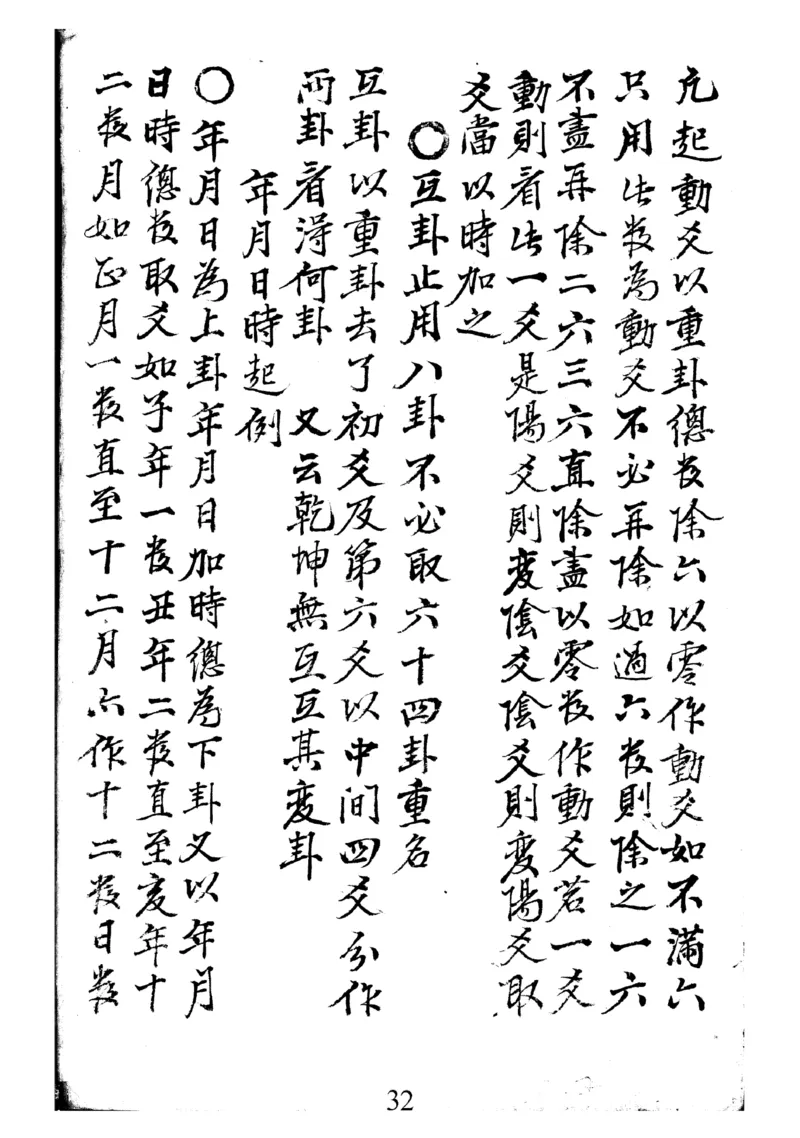 凢起動爻以重卦總数除六以零作動爻如不滿六
只用此数為動爻不必再除如過六数則除之一六
不盡再除二六三六直除盡以零数作動爻若一爻
動則看此一爻是陽爻則変陰爻陰爻則変陽爻取
爻當以時加之
〇互卦止用八卦不必取六十四卦重名
互卦以重卦去了初爻及第六爻以中间四爻分作
両卦看得何卦 又云乾坤無互互其変卦
年月日時起例
〇年月日為上卦年月日加時總為下卦又以年月
日時總数取爻如子年一数丑年二数直至亥年十
二数月如正月一数直至十二月亦作十二数日数
32